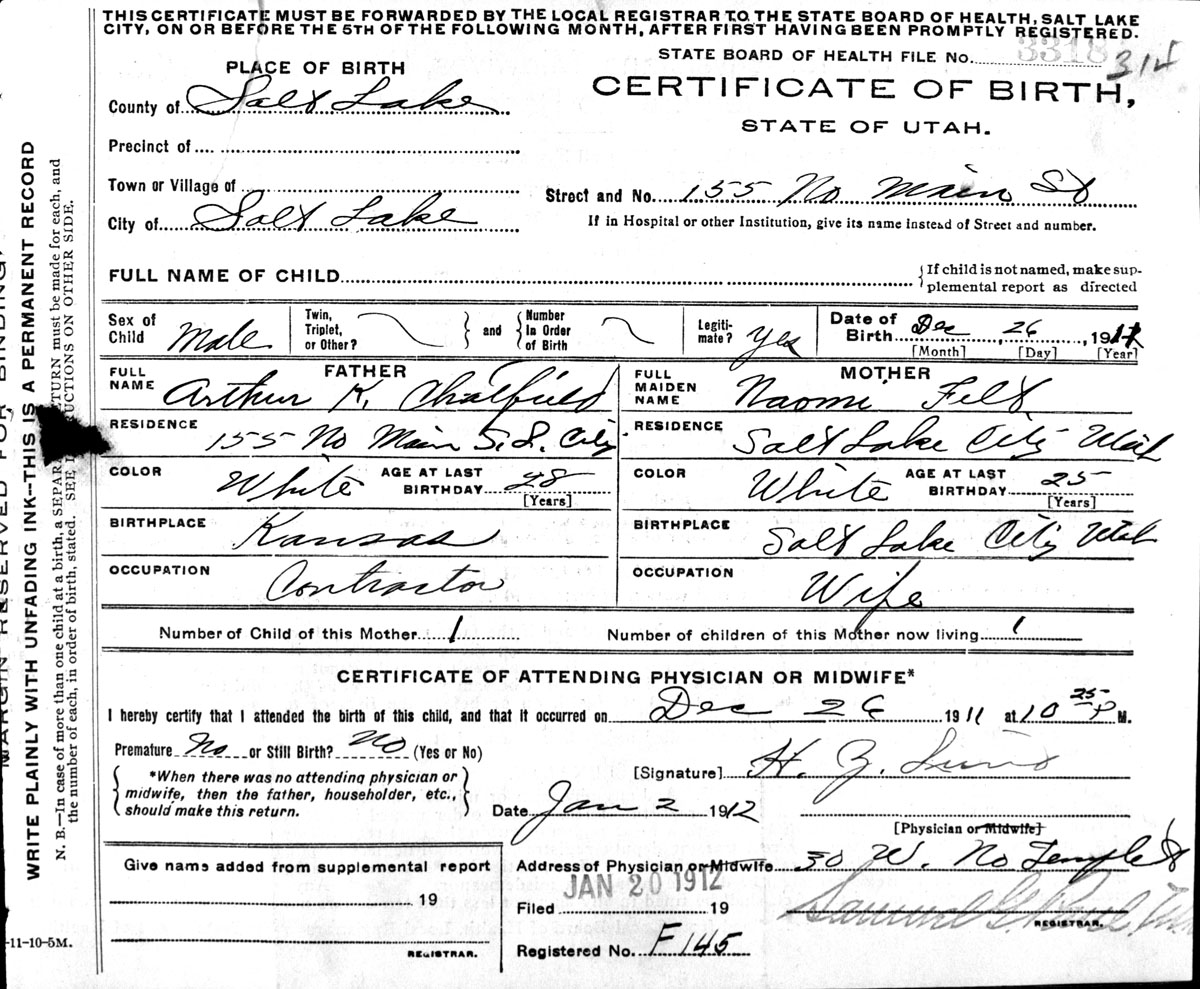 THIS CERTIFICATE MUST BE FORWARDED BY THE LOCAL REGISTRAR TO THE STATE BOARD OF HEALTH, SALT LAKE
CITY, ON OR BEFORE THE 5TH OF THE FOLLOWING MONTH, AFTER FIRST HAVING BEEN PROMPTLY REGISTERED.
STATE BOARD OF HEALTH FILE No. 3318 314
PLACE OF BIRTH
CERTIFICATE OF BIRTH,
STATE OF UTAH.
County of Salt Lake
Precinct of
Town or Village of
Street and No. 155 No Main St
City of Salt Lake
If in Hospital or other Institution, give its name instead of Street and number.
FULL NAME OF CHILD
{If child is not named, make sup-
plemental report as directed
Sex of Child Male
Twin, Triplet, or Other?
and
Number In Order of Birth
Legiti-mate? Yes
Date of Birth Dec 26, 1911
[Month] [Day] [Year]
FATHER
FULL NAME Arthur K. Chatfield
RESIDENCE 155 No Main S. L. City
COLOR White AGE AT LAST BIRTHDAY 28 [Years]
BIRTHPLACE Kansas
OCCUPATION Contractor
MOTHER
FULL MAIDEN NAME Naomi Felt
RESIDENCE Salt Lake City Utah
COLOR White AGE AT LAST BIRTHDAY 25 [Years]
BIRTHPLACE Salt Lake City Utah
OCCUPATION Wife
Number of Child of this Mother 1 Number of children of this Mother now living 1
CERTIFICATE OF ATTENDING PHYSICIAN OR MIDWIFE*
I hereby certify that I attended the birth of this child, and that it occurred on Dec 26 1911 at 10 25 P M.
Premature No or Still Birth? No (Yes or No)
*When there was no attending physician or
midwife, then the father, householder, etc.,
should make this return.
[Signature] H. Z. Lund
Date Jan 2 1912
[Physician or Midwife]
Give name added from supplemental report
19
REGISTRAR.
Address of Physician or Midwife 30 W. No Temple St
JAN 20 1912
Filed 19
Samuel G. Paul
REGISTRAR.
Registered No. F 145
-11-10-5M.
MARGIN RESERVED FOR BINDING.
WRITE PLAINLY WITH UNFADING INK--THIS IS A PERMANENT RECORD
N. B.—In case of more than one child at a birth, a SEPARATE RETURN must be made for each, and
the number of each, in order of birth, stated. SEE INSTRUCTIONS ON OTHER SIDE.